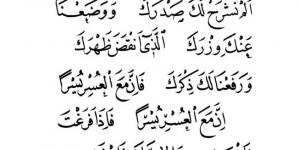 اَلَمْ نَشْرَحْ لَكَ صَدْرَكَ وَوَضَعْنَا
عَنْكَ وِزْرَكَ الَّذِىٓ اَنْقَضَ ظَهْرَكَ
وَرَفَعْنَا لَكَ ذِكْرَكَ فَاِنَّ مَعَ الْعُسْرِ يُسْرًا
اِنَّ مَعَ الْعُسْرِ يُسْرًا فَاِذَا فَرَغْتَ